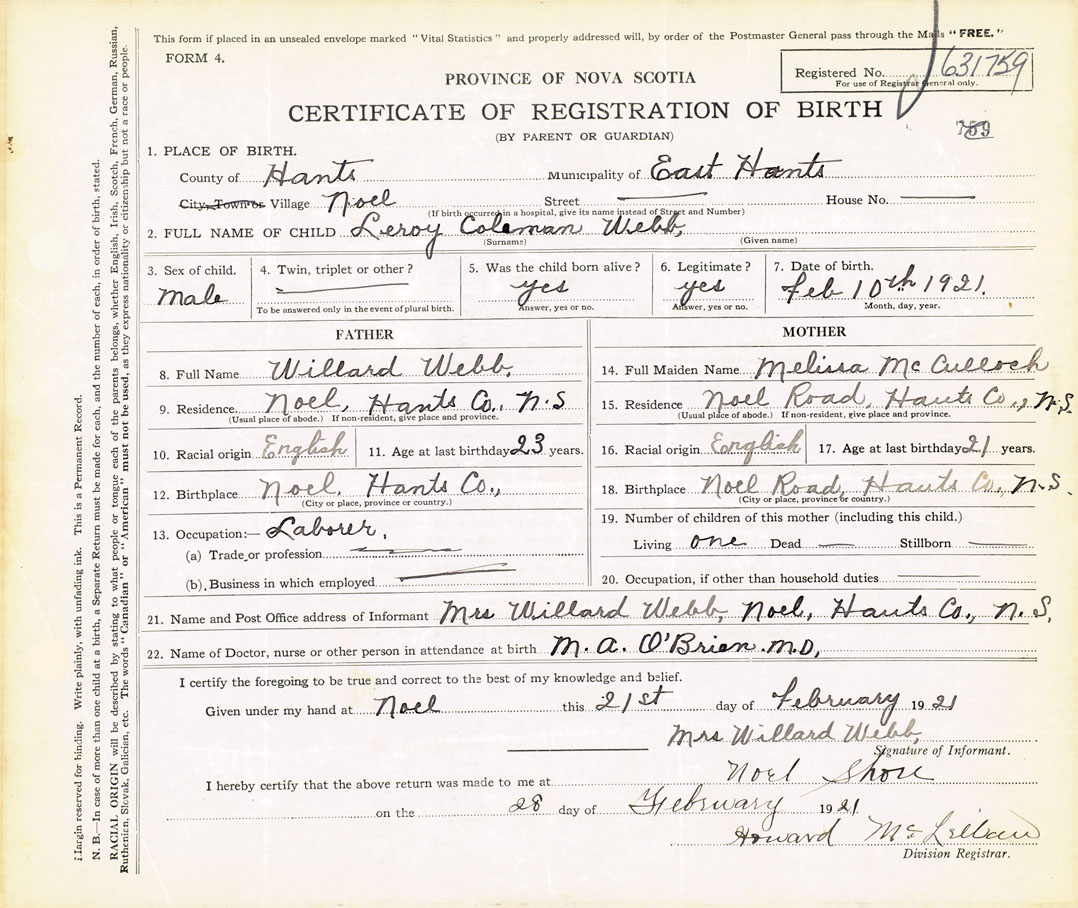 This form if placed in an unsealed envelope marked "Vital Statistics" and properly addressed will, by order of the Postmaster General pass through the Mails "FREE."
FORM 4.
Registered No. 631759
For use of Registrar General only.
PROVINCE OF NOVA SCOTIA
CERTIFICATE OF REGISTRATION OF BIRTH
(BY PARENT OR GUARDIAN)
759
1. PLACE OF BIRTH.
County of Hants Municipality of East Hants
City, Town or Village Noel Street House No.
(If birth occurred in a hospital, give its name instead of Street and Number)
2. FULL NAME OF CHILD Leroy Coleman Webb,
(Surname) (Given name)
3. Sex of child. 4. Twin, triplet or other? 5. Was the child born alive? 6. Legitimate? 7. Date of birth.
Male yes yes Feb 10th 1921.
To be answered only in the event of plural birth. Answer, yes or no. Answer, yes or no. Month, day, year.
FATHER
8. Full Name Willard Webb,
9. Residence. Noel, Hants Co., N.S
(Usual place of abode.) If non-resident, give place and province.
10. Racial origin English 11. Age at last birthday 23 years.
12. Birthplace Noel, Hants Co.,
(City or place, province or country.)
13. Occupation:— Laborer,
(a) Trade or profession
(b). Business in which employed
MOTHER
14. Full Maiden Name Melissa McCulloch
15. Residence Noel Road, Hants Co., N.S.
(Usual place of abode.) If non-resident, give place and province.
16. Racial origin English 17. Age at last birthday 21 years.
18. Birthplace Noel Road, Hants Co., N.S.
(City or place, province or country.)
19. Number of children of this mother (including this child.)
Living one Dead Stillborn
20. Occupation, if other than household duties
21. Name and Post Office address of Informant Mrs Willard Webb, Noel, Hants Co., N.S,
22. Name of Doctor, nurse or other person in attendance at birth M. A. O'Brien. M.D,
I certify the foregoing to be true and correct to the best of my knowledge and belief.
Given under my hand at Noel this 21st day of February 1921
Mrs Willard Webb,
Signature of Informant.
I hereby certify that the above return was made to me at Noel Shore
on the 28 day of February 1921
Howard McLellan
Division Registrar.
Margin reserved for binding. Write plainly, with unfading ink. This is a Permanent Record.
N. B.—In case of more than one child at a birth, a Separate Return must be made for each, and the number of each, in order of birth, stated.
RACIAL ORIGIN will be described by stating to what people or tongue each of the parents belongs, whether English, Irish, Scotch, French, German, Russian,
Ruthenian, Slovak, Galician, etc. The words "Canadian" or "American" must not be used, as they express nationality or citizenship but not a race or people.